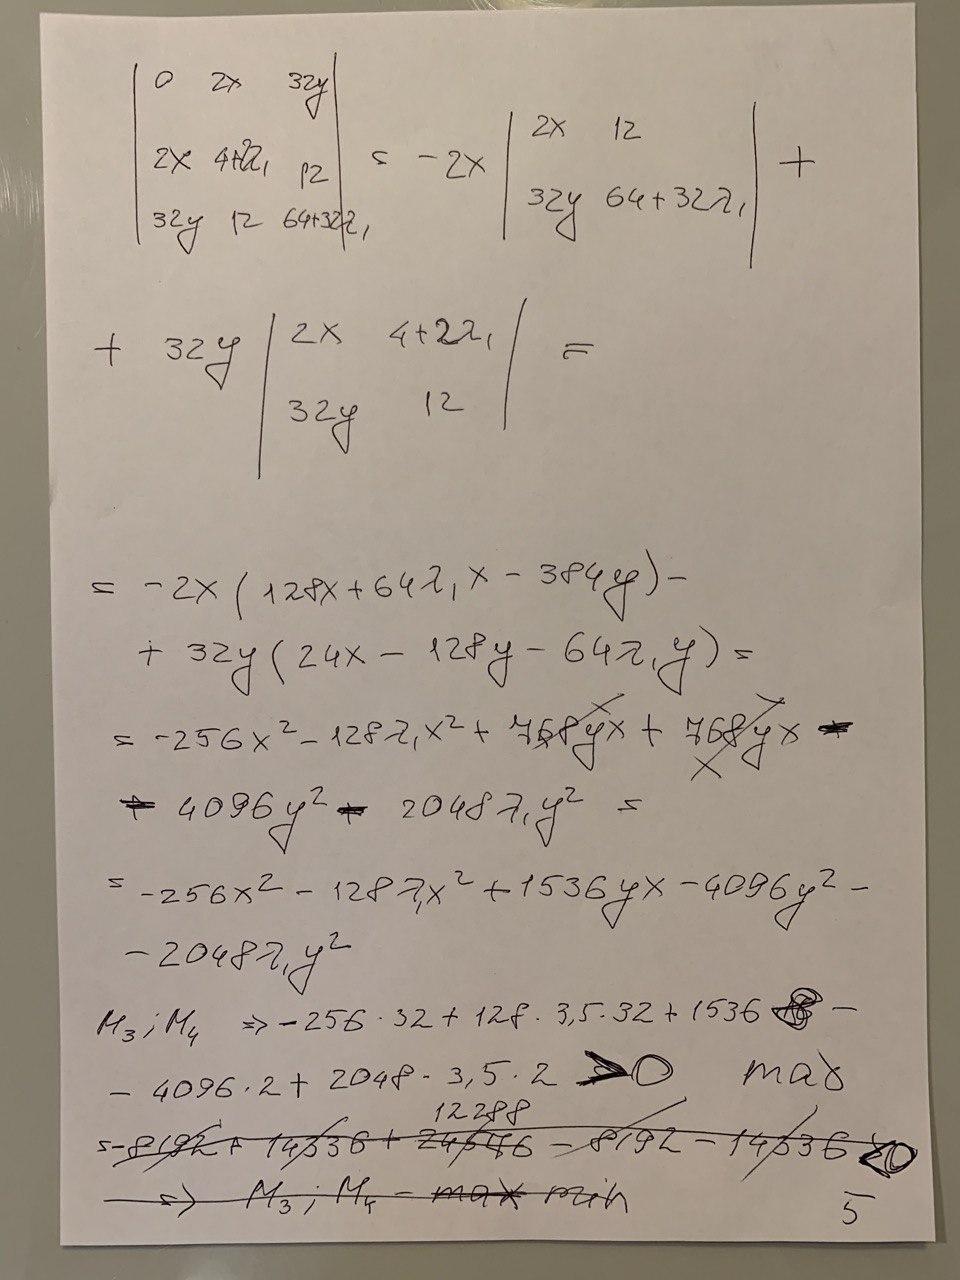 | 0 2x 32y |
| 2x 4+2λ₁ 12 | = -2x | 2x 12 | +
| 32y 12 64+32λ₁ | | 32y 64+32λ₁ |
+ 32y | 2x 4+2λ₁ | =
| 32y 12 |
= -2x (128x+64λ₁x - 384y) -
+ 32y (24x - 128y - 64λ₁y) =
= -256x² - 128λ₁x² + 768yx + 768yx -
- 4096y² - 2048λ₁y² =
= -256x² - 128λ₁x² + 1536yx - 4096y² -
- 2048λ₁y²
M₃; M₄ => -256·32 + 128·3,5·32 + 1536 8 -
- 4096·2 + 2048·3,5·2 > 0 max
12288
= -8192 + 14336 + 24576 - 8192 - 14336 < 0
=> M₃; M₄ - max min
5